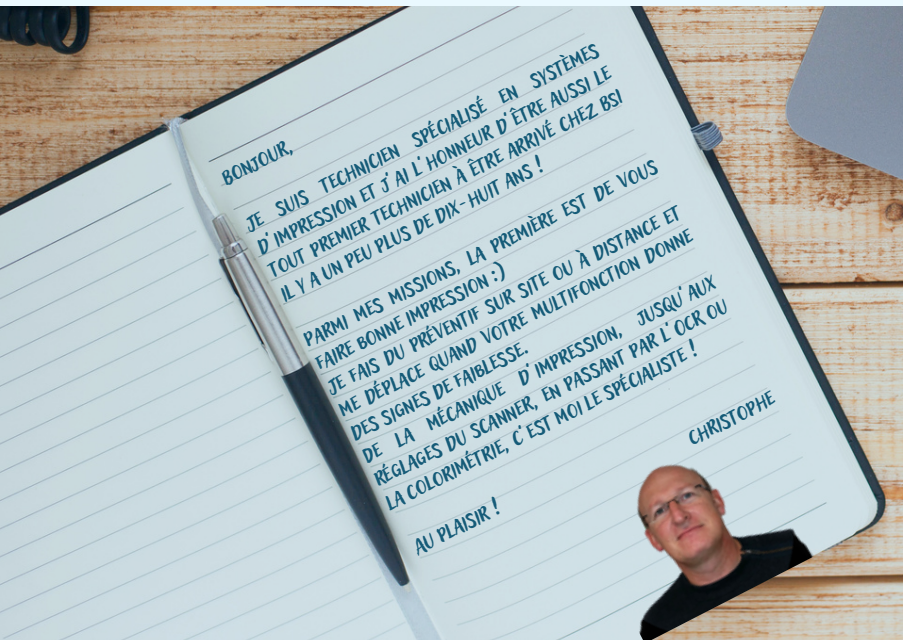 BONJOUR,
JE SUIS TECHNICIEN SPÉCIALISÉ EN SYSTÈMES
D'IMPRESSION ET J'AI L'HONNEUR D'ÊTRE AUSSI LE
TOUT PREMIER TECHNICIEN À ÊTRE ARRIVÉ CHEZ BSI
IL Y A UN PEU PLUS DE DIX-HUIT ANS !
PARMI MES MISSIONS, LA PREMIÈRE EST DE VOUS
FAIRE BONNE IMPRESSION :)
JE FAIS DU PRÉVENTIF SUR SITE OU À DISTANCE ET
ME DÉPLACE QUAND VOTRE MULTIFONCTION DONNE
DES SIGNES DE FAIBLESSE.
DE LA MÉCANIQUE D'IMPRESSION, JUSQU'AUX
RÉGLAGES DU SCANNER, EN PASSANT PAR L'OCR OU
LA COLORIMÉTRIE, C'EST MOI LE SPÉCIALISTE !
CHRISTOPHE
AU PLAISIR !